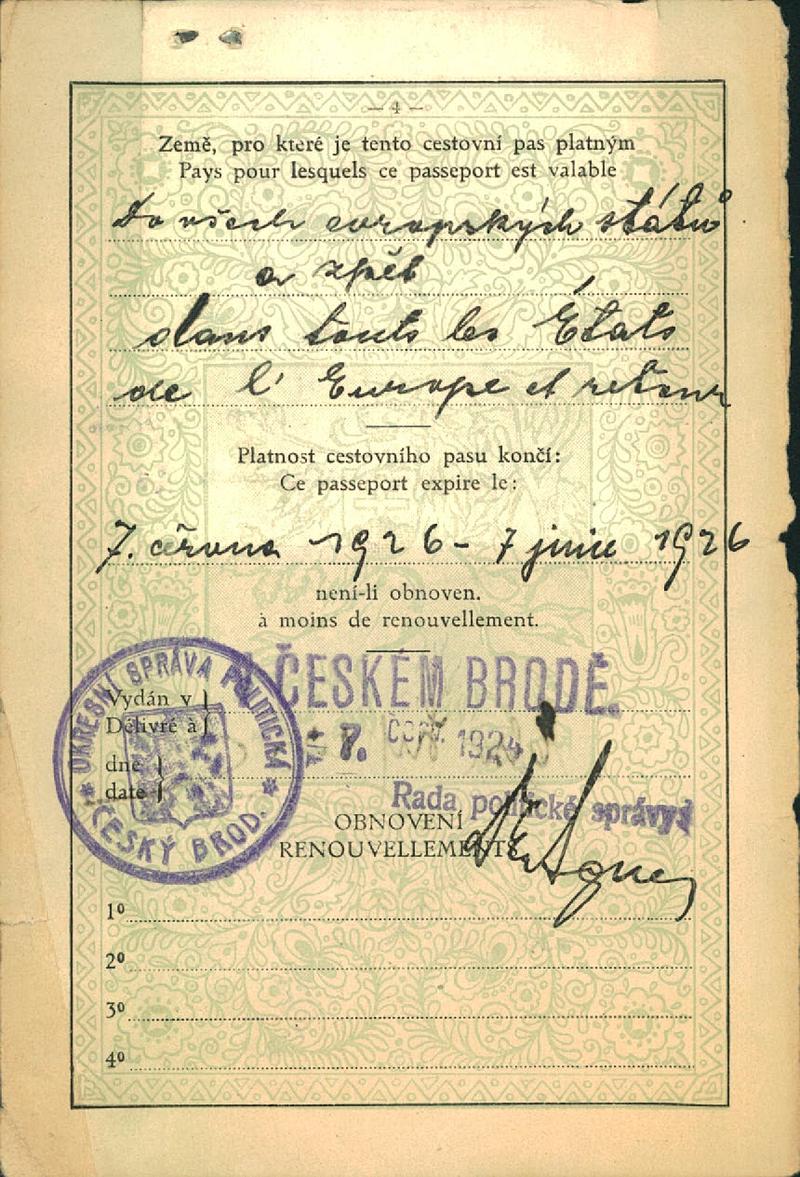 — 4 —
Země, pro které je tento cestovní pas platným
Pays pour lesquels ce passeport est valable
do všech evropských států
a zpět
dans touts les États
de l' Europe et retour
Platnost cestovního pasu končí:
Ce passeport expire le:
7. června 1926 - 7 juin 1926
není-li obnoven.
à moins de renouvellement.
OKRESNÍ SPRÁVA POLITICKÁ
* ČESKÝ BROD. *
Vydán v
ČESKÉM BRODĚ.
Délivré à
7. 1924
dne
date
Rada politické správy
OBNOVENÍ
RENOUVELLEMENTS
1º
2º
3º
4º